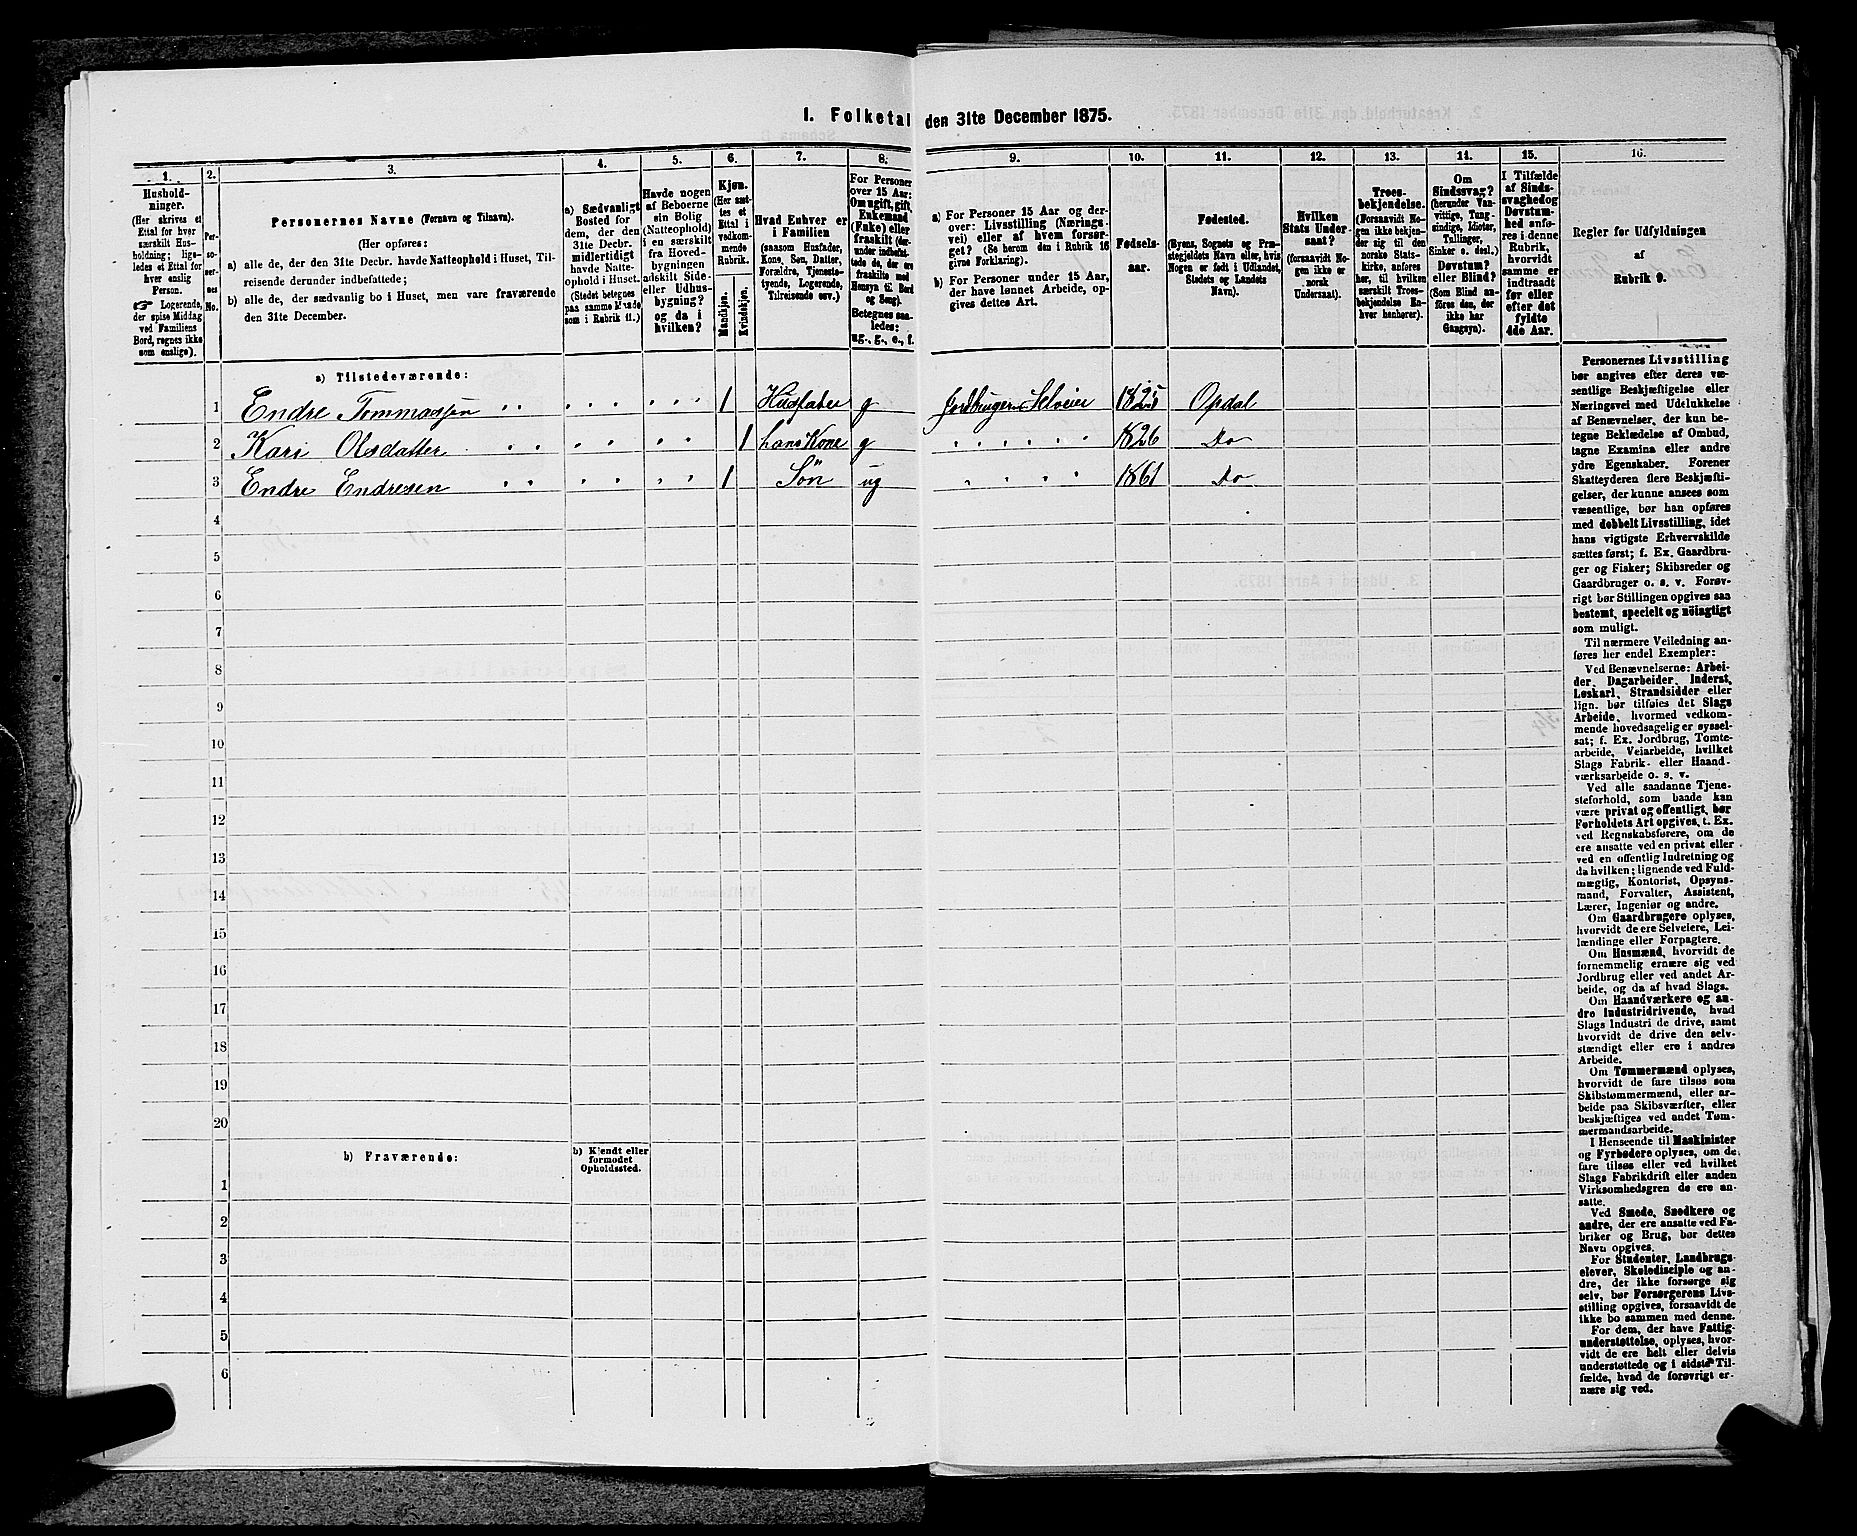 I. Folketal den 31te December 1875.
1. 2. 3. 4. 5. 6. 7. 8. 9. 10. 11. 12. 13. 14. 15. 16.
Hushold-
ninger.
(Her skrives et
Ettal for hver
særskilt Hus-
holdning; lige-
ledes et Ettal for
hver enslig
Person.
☞ Logerende,
der spise Middag
ved Familiens
Bord, regnes ikke
som enslige).
Per-
so-
ner-
nes
No.
Personernes Navne (Fornavn og Tilnavn).
(Her opføres:
a) alle de, der den 31te Decbr. havde Natteophold i Huset, Til-
reisende derunder indbefattede;
b) alle de, der sædvanlig bo i Huset, men vare fraværende
den 31te December.
a) Sædvanligt
Bosted for
dem, der den
31te Decbr.
midlertidigt
havde Natte-
ophold i Huset.
(Stedet betegnes
paa samme Maade
som i Rubrik 11.)
Havde nogen
af Beboerne
sin Bolig
(Natteophold)
i en særskilt
fra Hoved-
bygningen
adskilt Side-
eller Udhus-
bygning? og da i
hvilken?
Kjøn.
(Her sæt-
tes et
Ettal i
vedkom-
mende
Rubrik.
Mandkjøn.
Kvindekjøn.
Hvad Enhver er
i Familien
(saasom Husfader,
Kone, Søn, Datter,
Forældre, Tjeneste-
tyende, Logerende,
Tilreisende osv.)
For Personer
over 15 Aar:
Om ugift, gift,
Enkemand
(Enke) eller
fraskilt (der-
under indbefat-
tede de, der ere
fraskilte med
Hensyn til Bord
og Seng).
Betegnes saa-
ledes:
ug., g., e., f.
a) For Personer 15 Aar og der-
over: Livsstilling (Nærings-
vei) eller af hvem forsør-
get? (Se herom den i Rubrik 16
givne Forklaring).
b) For Personer under 15 Aar,
der have lønnet Arbeide, op-
gives dettes Art.
Fødsels-
aar.
Fødested.
(Byens, Sognets og Præ-
stegjeldets Navn eller, hvis
Nogen er født i Udlandet,
Stedets og Landets
Navn).
Hvilken
Stats Under-
saat?
(forsaavidt No-
gen ikke er
norsk
Undersaat).
Troes-
bekjendelse.
(Forsaavidt No-
gen ikke bekjen-
der sig til den
norske Stats-
kirke, anføres
her, til hvilken
særskilt Troes-
bekjendelse En-
hver hanhører).
Om
Sindssvag?
(herunder Van-
vittige, Tung-
sindige, Idioter,
Tullinger,
Sinker o. desl.)
Døvstum?
eller Blind?
(Som Blind an-
føres den, der
ikke har
Gangsyn).
I Tilfælde
af Sinds-
svaghed og
Døvstum-
hed anfø-
res i denne
Rubrik,
hvorvidt
samme er
indtraadt
før eller
efter det
fyldte
4de Aar.
Regler for Udfyldningen
af
Rubrik 9.
a) Tilstedeværende:
1 Endre Tommassen 1 Husfader g Jordbruger Selveier 1825 Opdal
2 Kari Olsdatter 1 hans Kone g 1826 Do
3 Endre Endresen 1 Søn ug 1861 Do
4
5
6
7
8
9
10
11
12
13
14
15
16
17
18
19
20
b) Fraværende:
b) Kjendt eller
formodet
Opholdssted.
1
2
3
4
5
6
Personernes Livsstilling
bør angives efter deres væ-
sentlige Beskjæftigelse eller
Næringsvei med Udelukkelse
af Benævnelser, der kun be-
tegne Beklædelse af Ombud,
tagne Examina eller andre
ydre Egenskaber. Forener
Skatteyderen flere Beskjæfti-
gelser, der kunne ansees som
væsentlige, bør han opføres
med dobbelt Livsstilling, idet
hans vigtigste Erhvervskilde
sættes først; f. Ex. Gaardbru-
ger og Fisker; Skibsreder og
Gaardbruger o. s. v. Forøv-
rigt bør Stillingen opgives saa
bestemt, specielt og nøiagtigt
som muligt.
Til nærmere Veiledning an-
føres her endel Exempler:
Ved Benævnelserne: Arbei-
der, Dagarbeider, Inderst,
Løskarl, Strandsidder eller
lign. bør tilføies det Slags
Arbeide, hvormed vedkom-
mende hovedsagelig er syssel-
sat; f. Ex. Jordbrug, Tomte-
arbeide, Veiarbeide, hvilket
Slags Fabrik- eller Haand-
værksarbeide o. s. v.
Ved alle saadanne Tjene-
steforhold, som baade kan
være privat og offentligt, bør
Forholdets Art opgives, t. Ex.
ved Regnskabsførere, om de
ere ansatte ved en privat eller
ved en offentlig Indretning og
da hvilken; lignende ved Fuld-
mægtig, Kontorist, Opsyns-
mand, Forvalter, Assistent,
Lærer, Ingeniør og andre.
Om Gaardbrugere oplyses,
hvorvidt de ere Selveiere, Lei-
lændinge eller Forpagtere.
Om Husmænd, hvorvidt de
fornemmelig ernære sig ved
Jordbrug eller ved andet Ar-
beide, og da af hvad Slags.
Om Haandværkere og an-
dre Industridrivende, hvad
Slags Industri de drive, samt
hvorvidt de drive den selv-
stændigt eller ere i andres
Arbeide.
Om Tømmermænd oplyses,
hvorvidt de fare tilsøs som
Skibstømmermænd, eller ar-
beide paa Skibsværfter, eller
beskjæftiges ved andet Tøm-
mermandsarbeide.
I Henseende til Maskinister
og Fyrbødere oplyses, om de
fare tilsøs eller ved hvilket
Slags Fabrikdrift eller anden
Virksomhedsgren de ere an-
satte.
Ved Smede, Snedkere og
andre, der ere ansatte ved Fa-
briker og Brug, bør dettes
Navn opgives.
For Studenter, Landbrugs-
elever, Skoledisciple og an-
dre, der ikke forsørge sig
selv, bør Forsørgerens Livs-
stilling opgives, forsaavidt de
ikke bo sammen med denne.
For dem, der have Fattig-
understøttelse, oplyses, hvor-
vidt de ere helt eller delvis
understøttede og i sidste Til-
fælde, hvad de forøvrigt er-
nære sig ved.